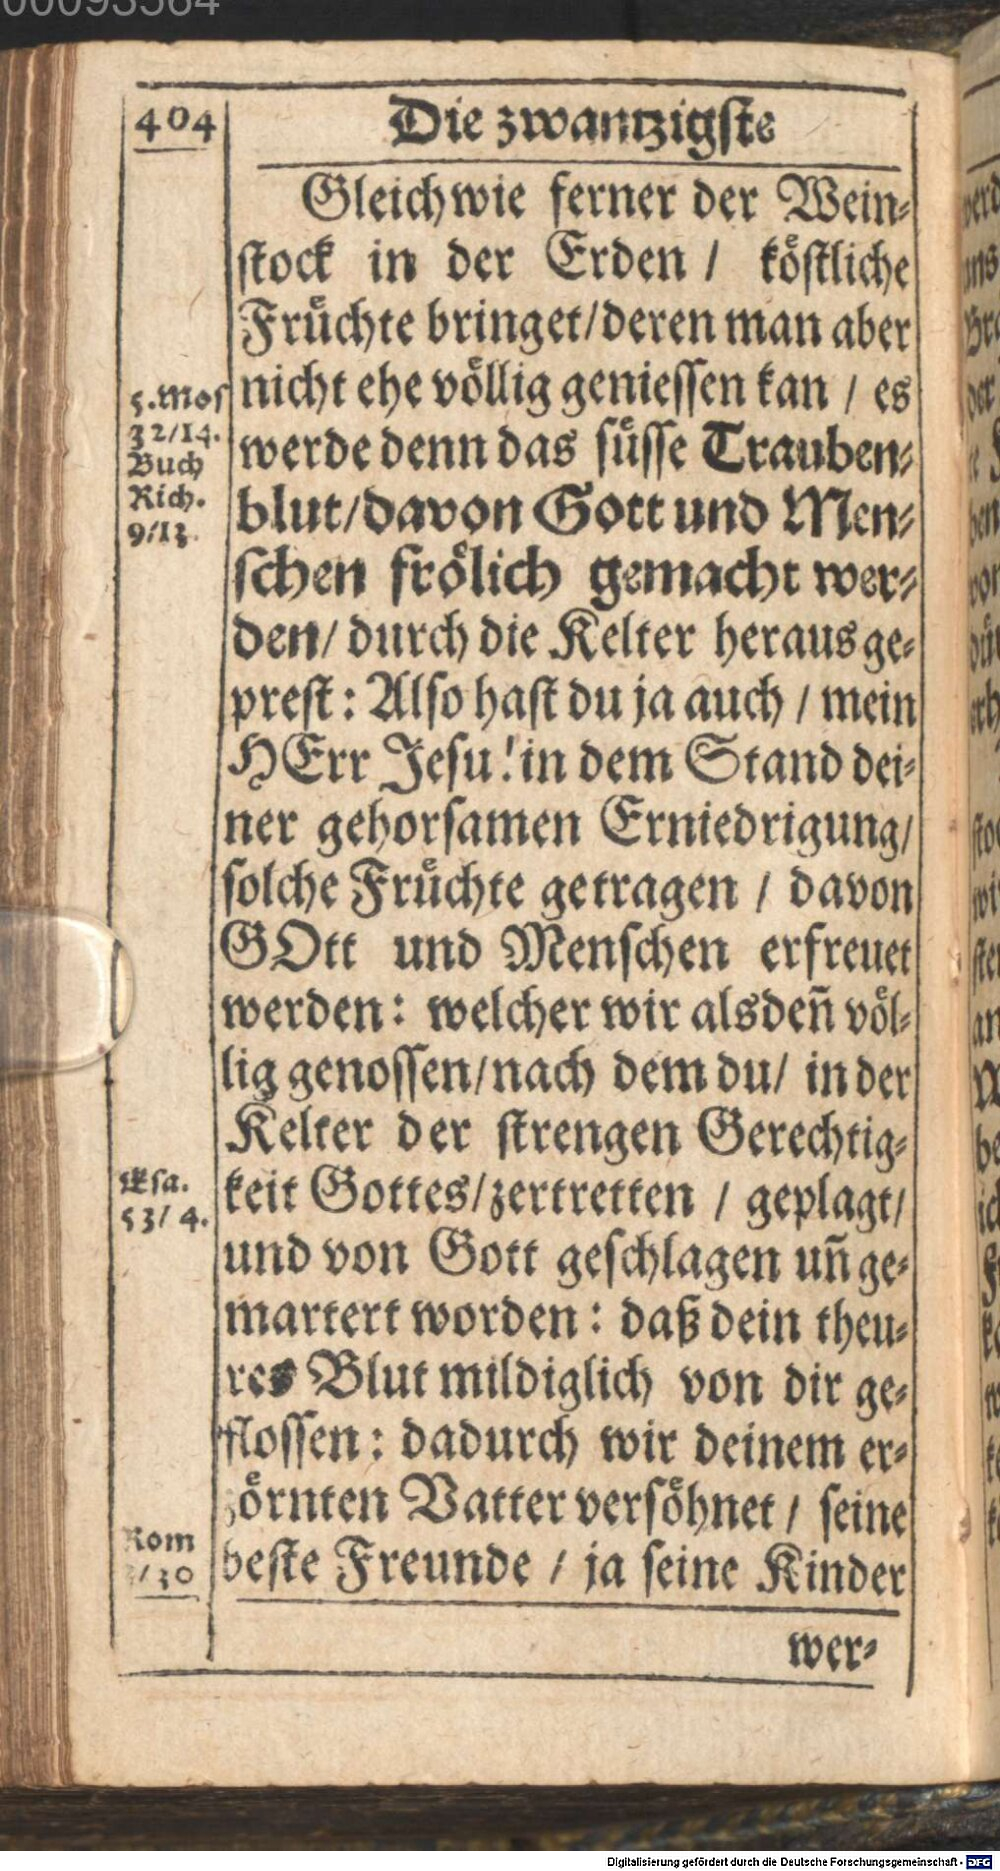 00093564
404
Die zwantzigſte
Gleichwie ferner der Wein⸗
ſtock in der Erden / koͤſtliche
Fruͤchte bringet/deren man aber
nicht ehe voͤllig genieſſen kan / es
werde denn das ſuͤſſe Trauben⸗
blut/davon Gott und Men⸗
ſchen froͤlich gemacht wer⸗
den/ durch die Kelter heraus ge⸗
preſt: Alſo haſt du ja auch / mein
HErr Jeſu! in dem Stand dei⸗
ner gehorſamen Erniedrigung/
ſolche Fruͤchte getragen / davon
GOtt und Menſchen erfreuet
werden: welcher wir alsdeñ voͤl⸗
lig genoſſen/nach dem du/ in der
Kelter der ſtrengen Gerechtig⸗
keit Gottes/zertretten / geplagt/
und von Gott geſchlagen uñ ge⸗
martert worden: daß dein theu⸗
res Blut mildiglich von dir ge⸗
floſſen: dadurch wir deinem er⸗
zoͤrnten Vatter verſoͤhnet / ſeine
beſte Freunde / ja ſeine Kinder
wer⸗
5. Moſ
32/14.
Buch
Rich.
9/13.
Eſa.
53/ 4.
Rom
/30
Digitalisierung gefördert durch die Deutsche Forschungsgemeinschaft - DFG